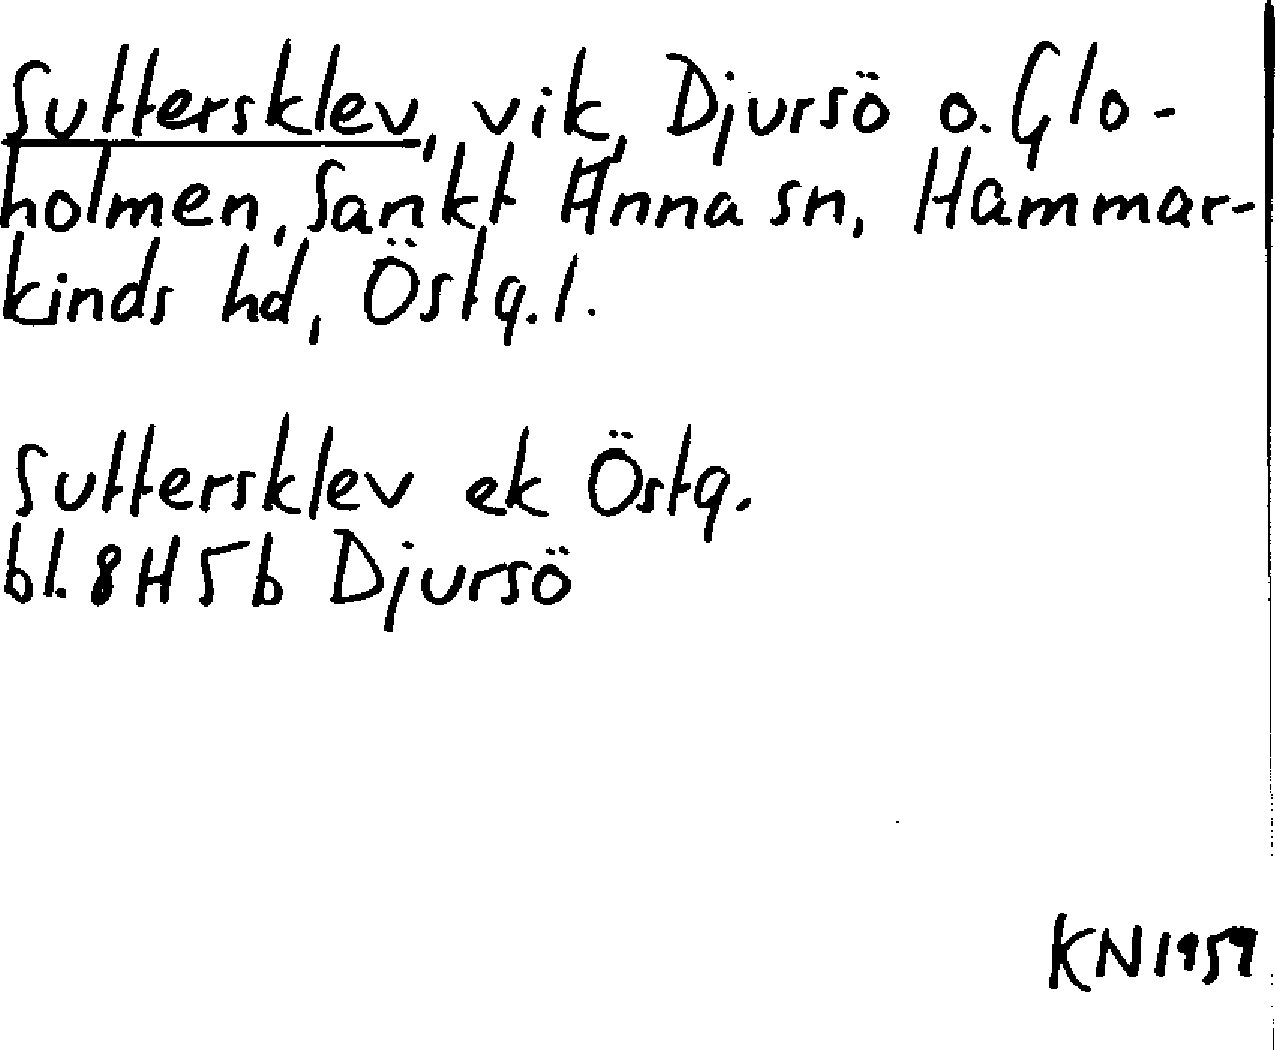 Suttersklev, vik, Djursö o. Glo-
holmen, Sankt Anna sn, Hammar-
kinds hd, Östg. l.
Suttersklev ek Östg.
bl. 8H5b Djursö
KN 1959